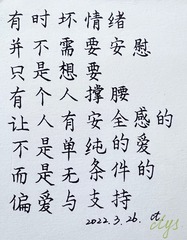 有时坏情绪
并不需要安慰
只是想要
有个人撑腰
让人有安全感的
不是单纯的爱
而是无条件的
偏爱与支持
2022.3.26.